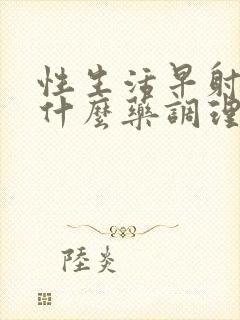 性生活早射
什麼藥調理
陸炎